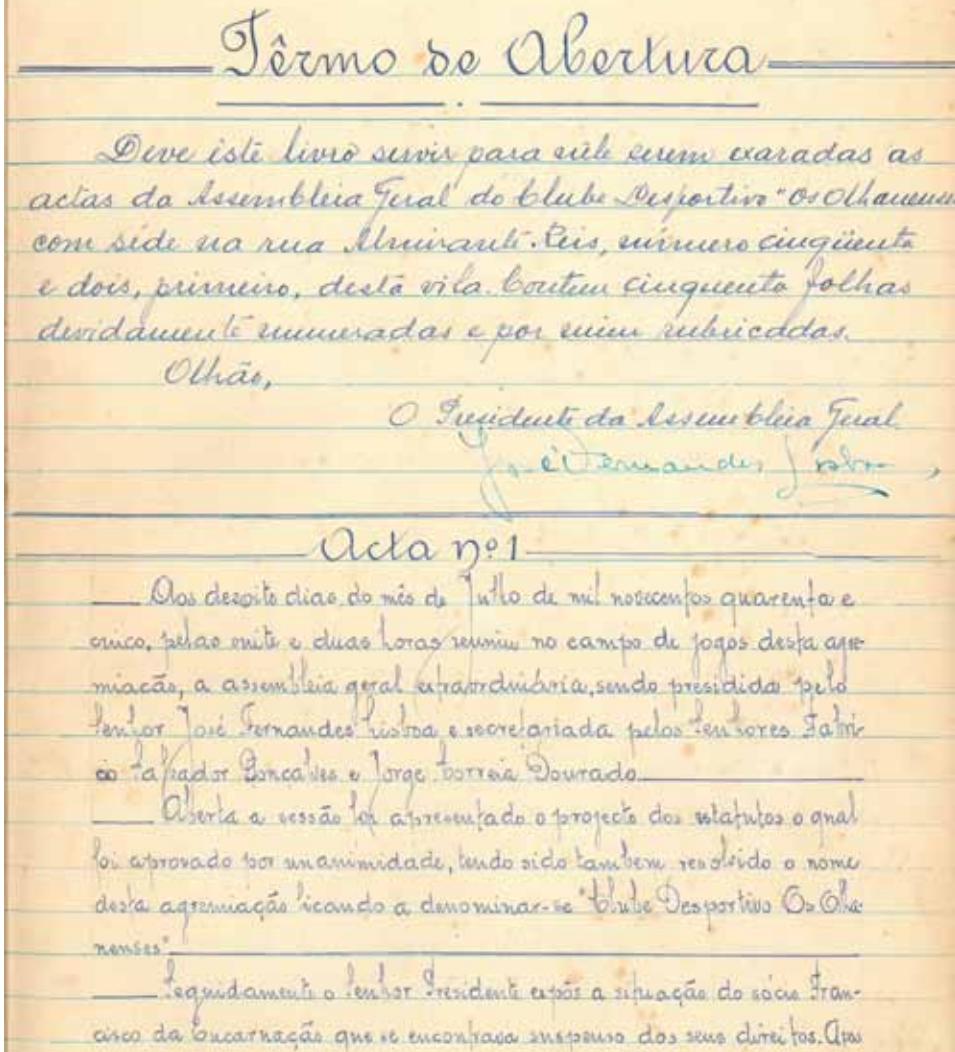 Têrmo de Abertura
Deve êste livro servir para nêle serem exaradas as
actas da Assembleia Geral do Clube Desportivo "Os Olhanenses
com séde na rua Almirante Reis, número cinqüenta
e dois, primeiro, desta vila. Contem cinquenta folhas
devidamente numeradas e por mim rubricadas.
Olhão,
O Presidente da Assembleia Geral
José Fernandes Lisboa
Acta nº 1
Aos dezoito dias do mês de Julho de mil novecentos quarenta e
cinco, pelas vinte e duas horas reuniu no campo de jogos desta agre-
miacão, a assembleia geral extraordinária, sendo presidida pelo
Senhor José Fernandes Lisboa e secretariada pelos Senhores Fabri-
co Gonçalves e Jorge Correia Dourado
Aberta a sessão foi apresentado o projecto dos estatutos o qual
foi aprovado por unanimidade, tendo sido tambem resolvido o nome
desta agremiação ficando a denominar-se "Clube Desportivo Os Olha-
nenses"
Seguidamente o Senhor Presidente expôs a situação do sócio Fran-
cisco da Encarnação que se encontrava suspenso dos seus direitos. Apos